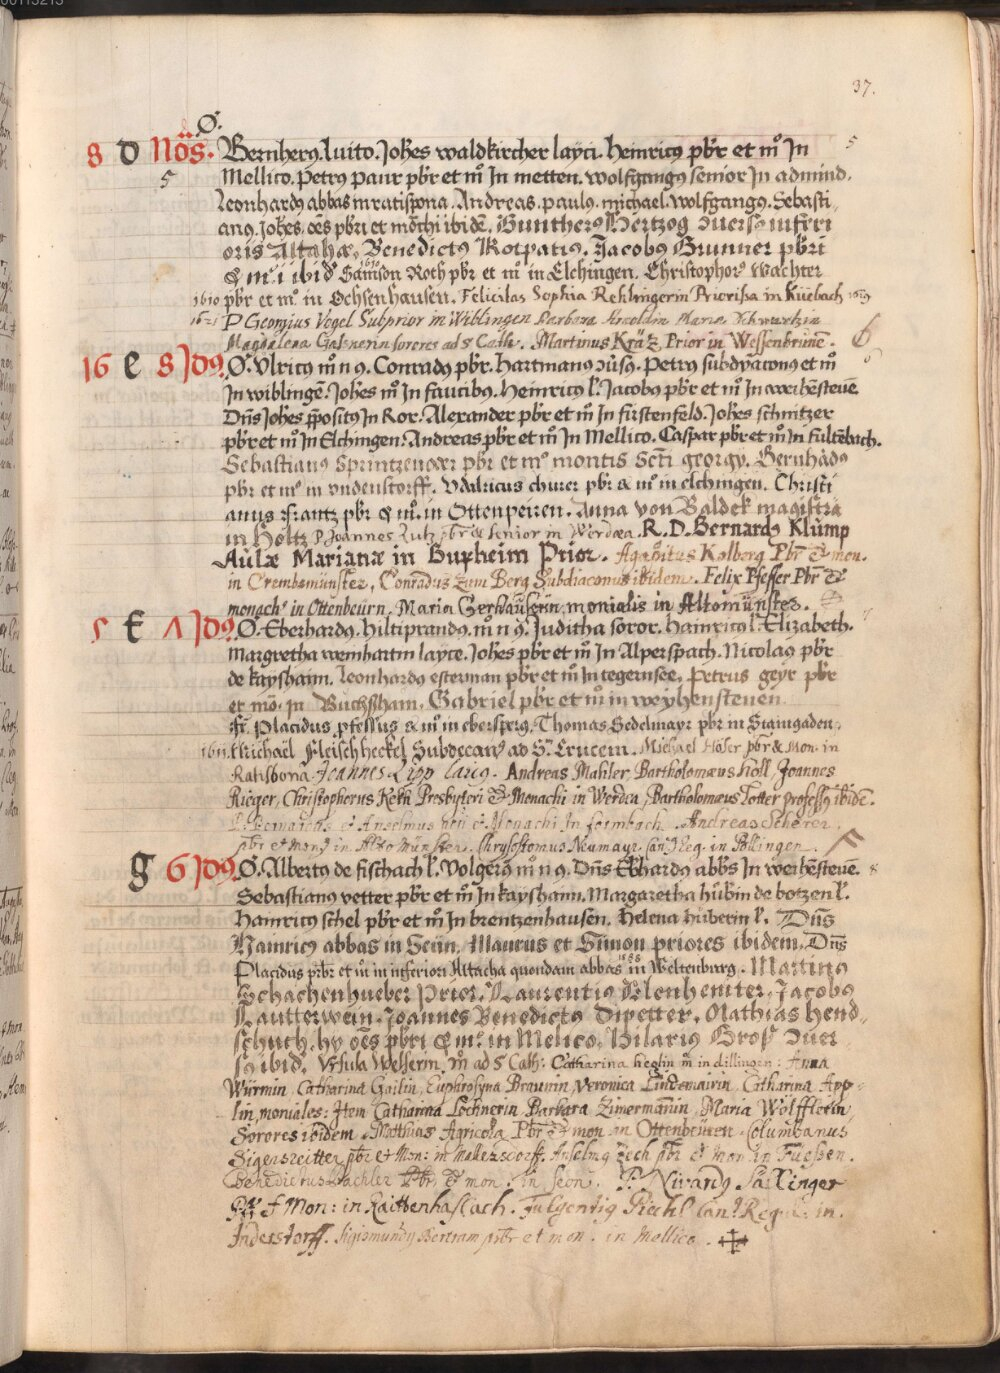 37.
O.
8 D Nōs. Bernherꝰ. Luito. Joh̄es waldkircher layci. Heinricꝰ pb̄r et m̊ Jn 5
5 Mellico. Petrꝰ Paur pb̄r et m̊ Jn metten. wolfgangꝰ senior Jn admind.
Leonhardꝰ abbas in ratispona. Andreas. paulꝰ. michael. wolfgangꝰ. Sebasti
anꝰ. Joh̄es. oēs pb̄ri et mōchi ibidē. Guntherꝰ Hertzog ꝯuersꝰ inferi
oris Altahæ. Benedictꝰ Rotpatꝰ. Jacobus Brunner pb̄ri
& m̊.i ibid̄ Samson Roth pb̄r et m̊ in Elchingen. Christophorꝰ Wachter
1610 pb̄r et m̊ in Ochsenhausen. Felicitas Sophia Rehlingerin Priorissa in Küebach 1619
1621 P Georgius Vogel Subprior in Wiblingen Barbara Maria Schwartzin
Magdalena Gassnerin sorores ad S Cath. Martinus Krätz Prior in Wessenbrunē. 6
16 e 8 Jdꝰ. O. Vlricꝰ m n ꝯ. Conradꝰ pb̄r. Hartmanꝰ ꝯūsꝰ. Petrꝰ subdyaconꝰ et m̊
Jn wiblingē. Joh̄es m̊ Jn faucibꝰ. Heinricꝰ l̄. Jacobꝰ pb̄r et m̊ Jn weihēsteuē
Dn̄s Joh̄es p̄positꝰ Jn Ror. Alexander pb̄r et m̊ Jn fürstenfeld. Joh̄es schnitzer
pb̄r et m̊ Jn Elchingen. Andreas pb̄r et m̊ Jn Mellico. Caspar pb̄r et m̊ Jn fultēbach.
Sebastianꝰ Sprintzenöer pb̄r et m̊ montis Sct̄i georgy. Bernhadꝰ
pb̄r et m̊ in vndenstorff. Vdalricus churer pb̄r & m̊ in elchingen. Christi
anus Frantz pb̄r & m̊. in Ottenpeiren. Anna von Baldek magistra
in Höltz P Joannes Lutz pb̄r & Senior in Werdea. R. D. Bernardꝰ Klümp
Aulæ Marianæ in Buxheim Prior. Agapitus Kolberg Pb̄r & mon.
in Crembsmünster, Conradus Zum Berg Subdiaconus ibidem. Felix Pfeffer Pb̄r &
monachꝰ in Ottenbeurn. Maria Gerhauserin, monialis in Altomünster.
5 f Λ Jdꝰ. O. Eberhardꝰ. Hiltiprandꝰ. m n ꝯ. Juditha soror. Hainricꝰ l. Elizabeth. 7
Margretha weinhartin layce. Joh̄es pb̄r et m̊ Jn Alperspach. Nicolaꝰ pb̄r
de kayshaim. Leonhardꝰ esterman pb̄r et m̊ Jn tegernsee. Petrus geyr pb̄r
et mō. in Buchsham. Gabriel pb̄r et m̊ in weyhensteuen
fr̄. Placidus pfessus & m̊ in ebersperg. Thomas Sedelmayr pb̄r in Staingaden.
1611 Michaël Fleischheckel Subdecanꝰ ad S. Crucem. Michael Höser pb̄r & Mon. in
Ratisbona. Joannes Lipp laicꝰ. Andreas Mahler, Bartholomæus Höll, Joannes
Rieger, Christophorus Kekh Presbyteri & Monachi in Werdea, Bartholomæus Totter professꝰ ibidē.
P. Bernardus et Anselmus pb̄ri & Monachi In formbach. Andreas Scherer
pb̄r et mon̄ in Alto Münster. Chrysostomus Neumayr. can. Reg. in Pollingen.
g 6 Jdꝰ. O. Albertꝰ de fischach l̄. Volgerꝰ m n ꝯ. Dn̄s Ekhardꝰ abbs̄ Jn weihēsteuē. 8
Sebastianꝰ vetter pb̄r et m̊ Jn kayshaim. Margaretha hübin de botzen l̄.
Hainricꝰ schel pb̄r et m̊ Jn brentzenhausen. Helena hüberin l̄. Dn̄s
Hainricꝰ abbas in Seün. Maurus et Simon priores ibidem. Dn̄s
Placidus pr̄br et m̊ in inferiori Altacha quondam abbas in Weltenburg. Martinꝰ
Schachenhueber Prior. Laurentiꝰ Blenhemter. Jacobꝰ
Lautterwein. Joannes Benedictꝰ Dipetter. Mathias Hend
schuch. hy oēs pb̄ri & m̊.i in Melico. Hilariꝰ Groß ꝯuer
sꝰ ibid̄. Vrsula Welserin m̊ ad S Cath: Catharina heglin m̄ in dillingen: Anna
Würmin, Catharina Gailin, Euphrosyna Braunin, Veronica Lindenmairin, Catharina App-
lin, moniales: Jtem Catharina Lochnerin Barbara Zimermāin, Maria Wölfflerin,
Sorores ibidem. Matthias Agricola Pb̄r & mon in Ottenbeüren. Columbanus
Sigersreitter pb̄r & Mon: in Mallerstorff. Anselmꝰ Zech pb̄r & mon in Füessen.
Benedictus Bachler Pb̄r & mon. in Seon. P. Nivardꝰ Sallinger
Pr. & Mon: in Raittenhaslach. Fulgentiꝰ Riechl can: Regul: in
Jnderstorff. Sigismundꝰ Bertram pr̄br et mon. in Mellico.